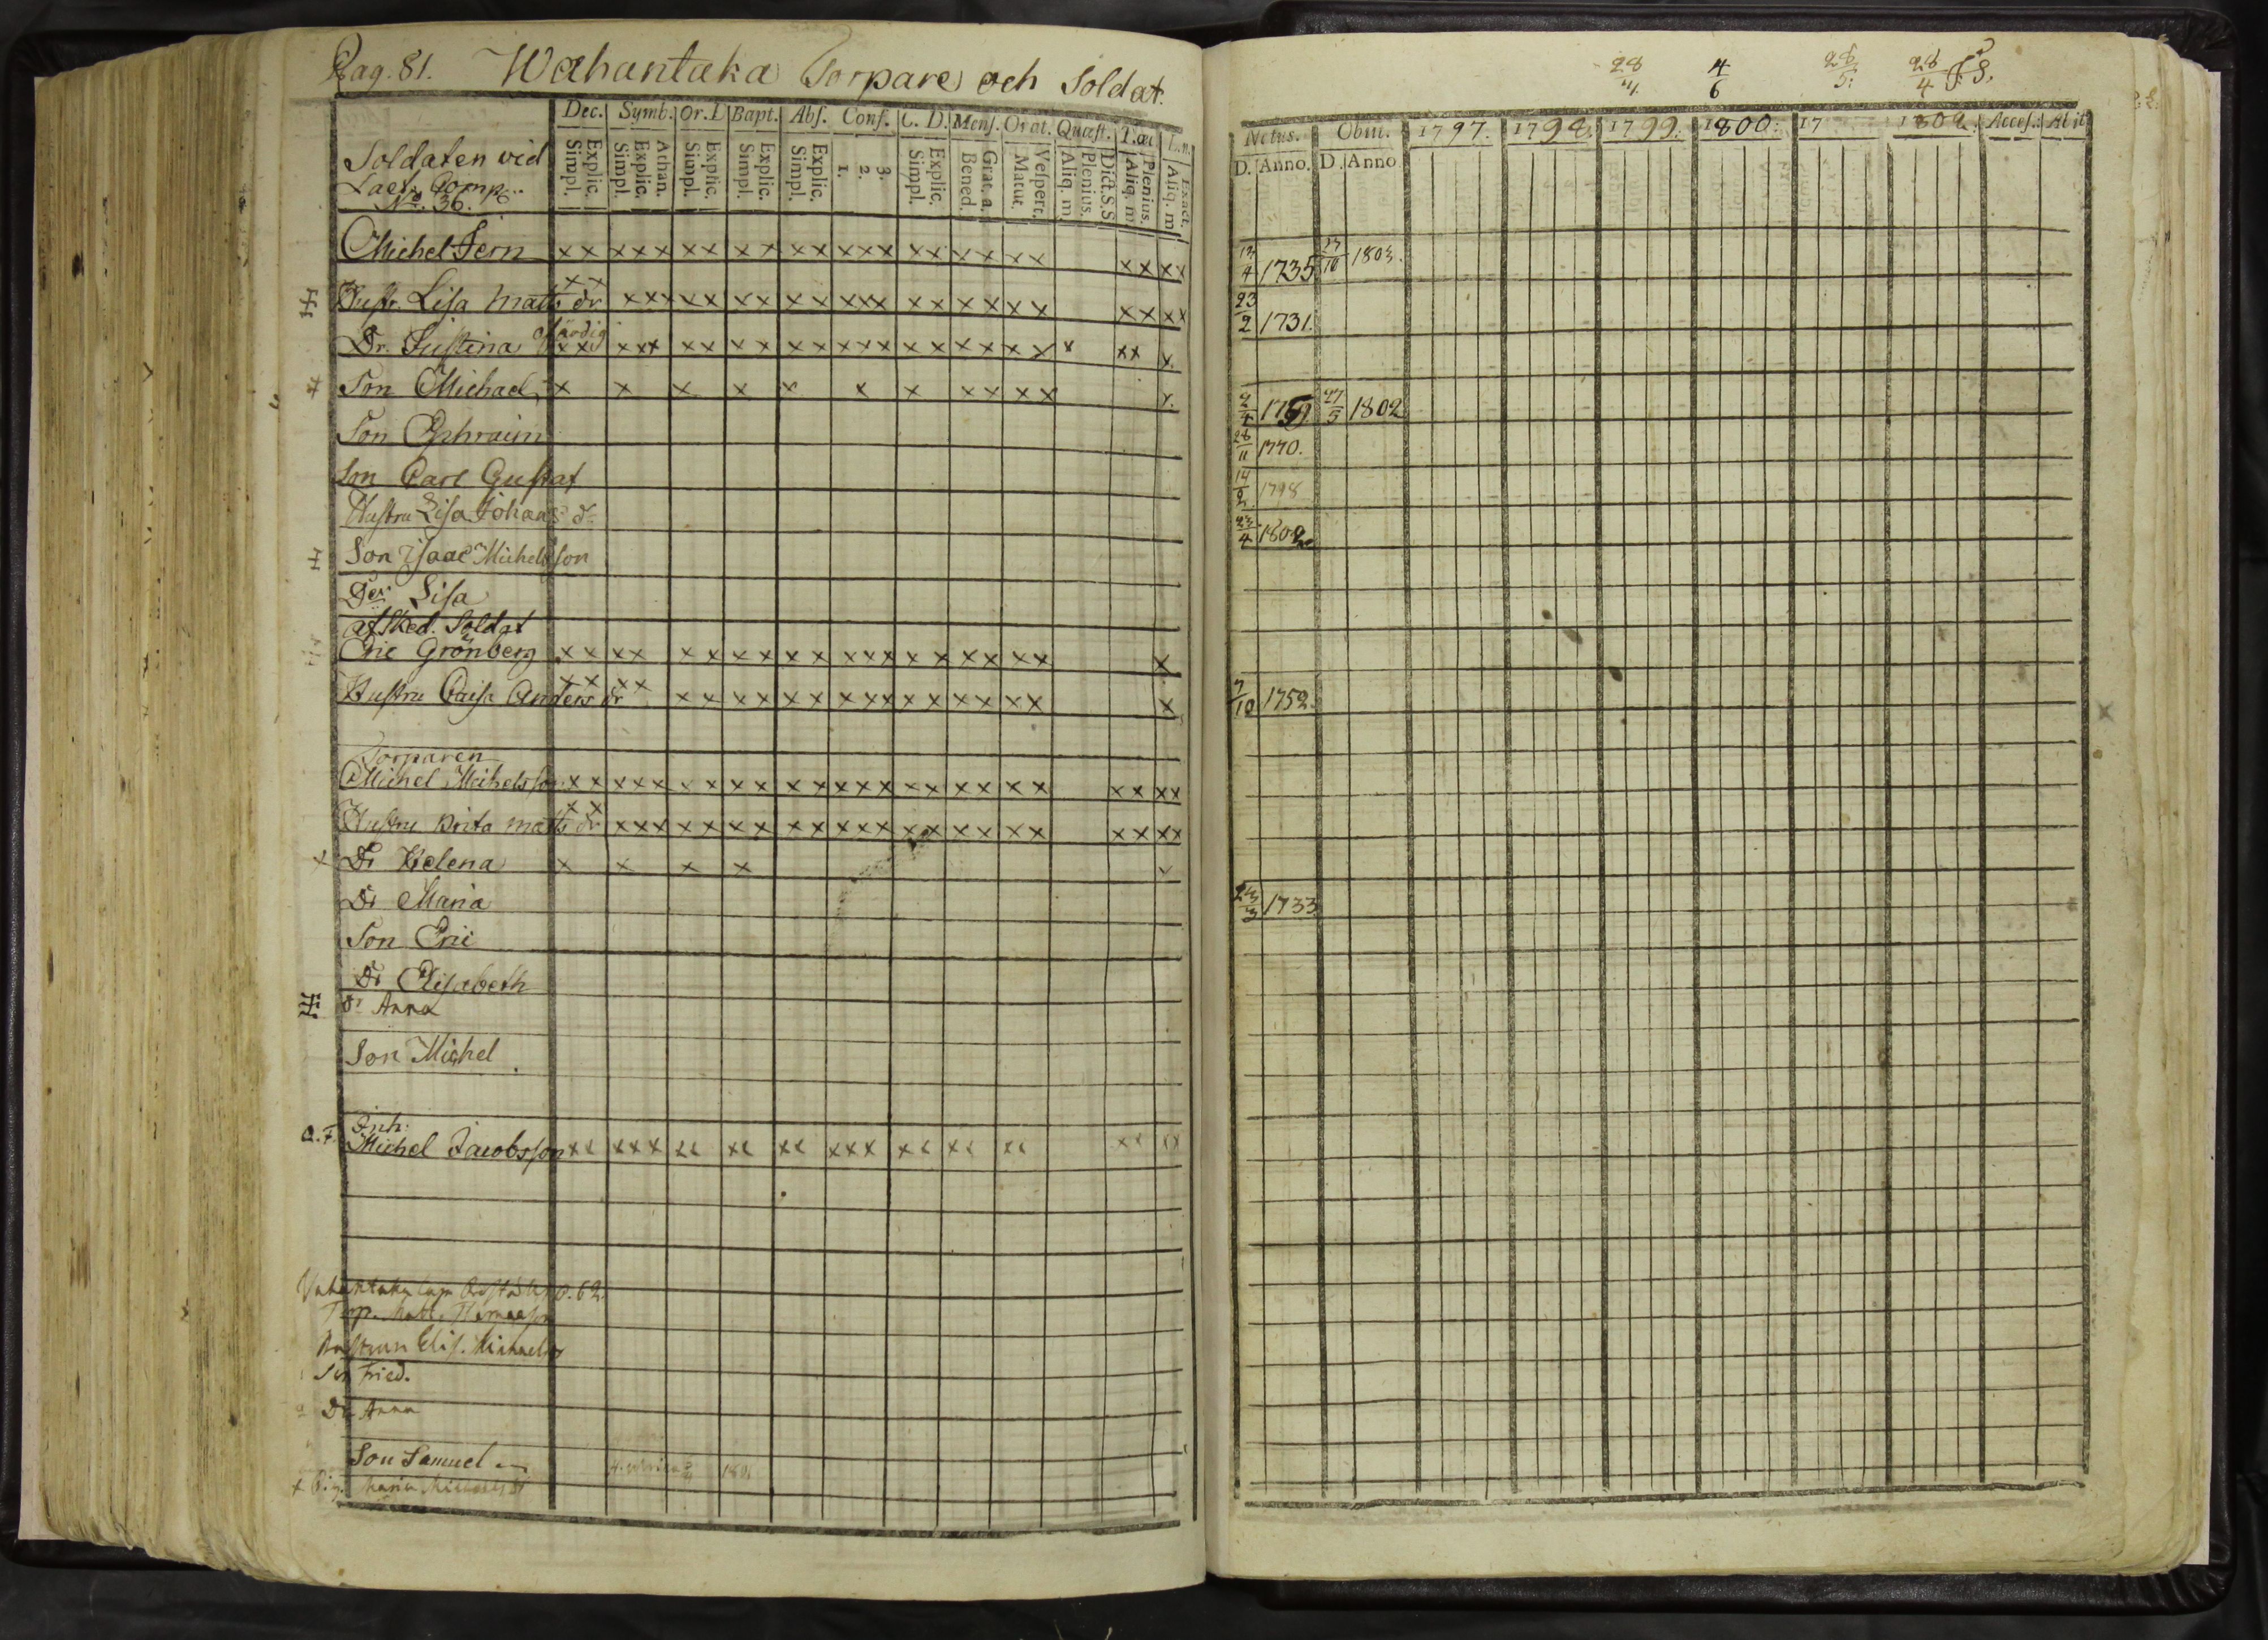 Pag. 81. Wahantaka Torpare och Soldat.
Dec. Symb. Or. D Bapt. Abs. Conf. C. D. Mens. Orat. Quæst.
Explic. Simpl. Athan. Explic. Simpl. Explic. Simpl. Explic. Simpl. Explic. Simpl. 3. 2. 1. Explic. Simpl. Grat. a. Bened. Vespert. Matut. Dict. S.S Plenius. Aliq. m Plenius. Aliq. m Exact. Aliq. m
Soldaten vid
Comp.
No. 36.
Michel Fern xx xxx xx xx xx xxx xx xx xx xx xx
Hustr. Lisa Matts dr xx xxx xx xx xx xxx xx xx xx xx xx
Dr. Justina xxx xxx xx xx xx xxx xx xx xx x xx x
Son Michael x x x x x x x xx xx x
Son Ephraim
Son Carl Gustaf
Hustru Lisa Johans dr
Son Isaac Michelsson
Dr Lisa
Afsked. Soldat
Eric Grönberg xx xx xx xx xx xxx xx xx xx x
Hustru Caisa Anders dr xx xx xx xx xx xxx xx xx xx x
Torparen
Michel Michelsson xx xxx xx xx xx xxx xx xx xx xx xx
Hustru Brita Matts dr xx xxx xx xx xx xxx xx xx xx xx xx
x Dr Helena x x x x
Dr Maria
Son Eric
Dr Elisabeth
Dr Anna
Son Michel
Inh:
Michel Jacobsson xx xxx xx xx xx xxx xx xx xx xx xx
Torp. Matt. Thomasson
Hustrun Elis. Michaelsdr
Son Fried.
Dr Anna
Son Samuel
x Pig. Maria
28/4 4/6 28/5: 28/4
Natus. Obiit. 1797. 1798. 1799. 1800: 17 1802. Acces. Abiit
D. Anno. D. Anno
13/4 1735 17/10 1803.
23/2 1731.
1759 27/5 1802
28/11 1770.
14/2 1798
23/4 1802
7/10 1752.
1733